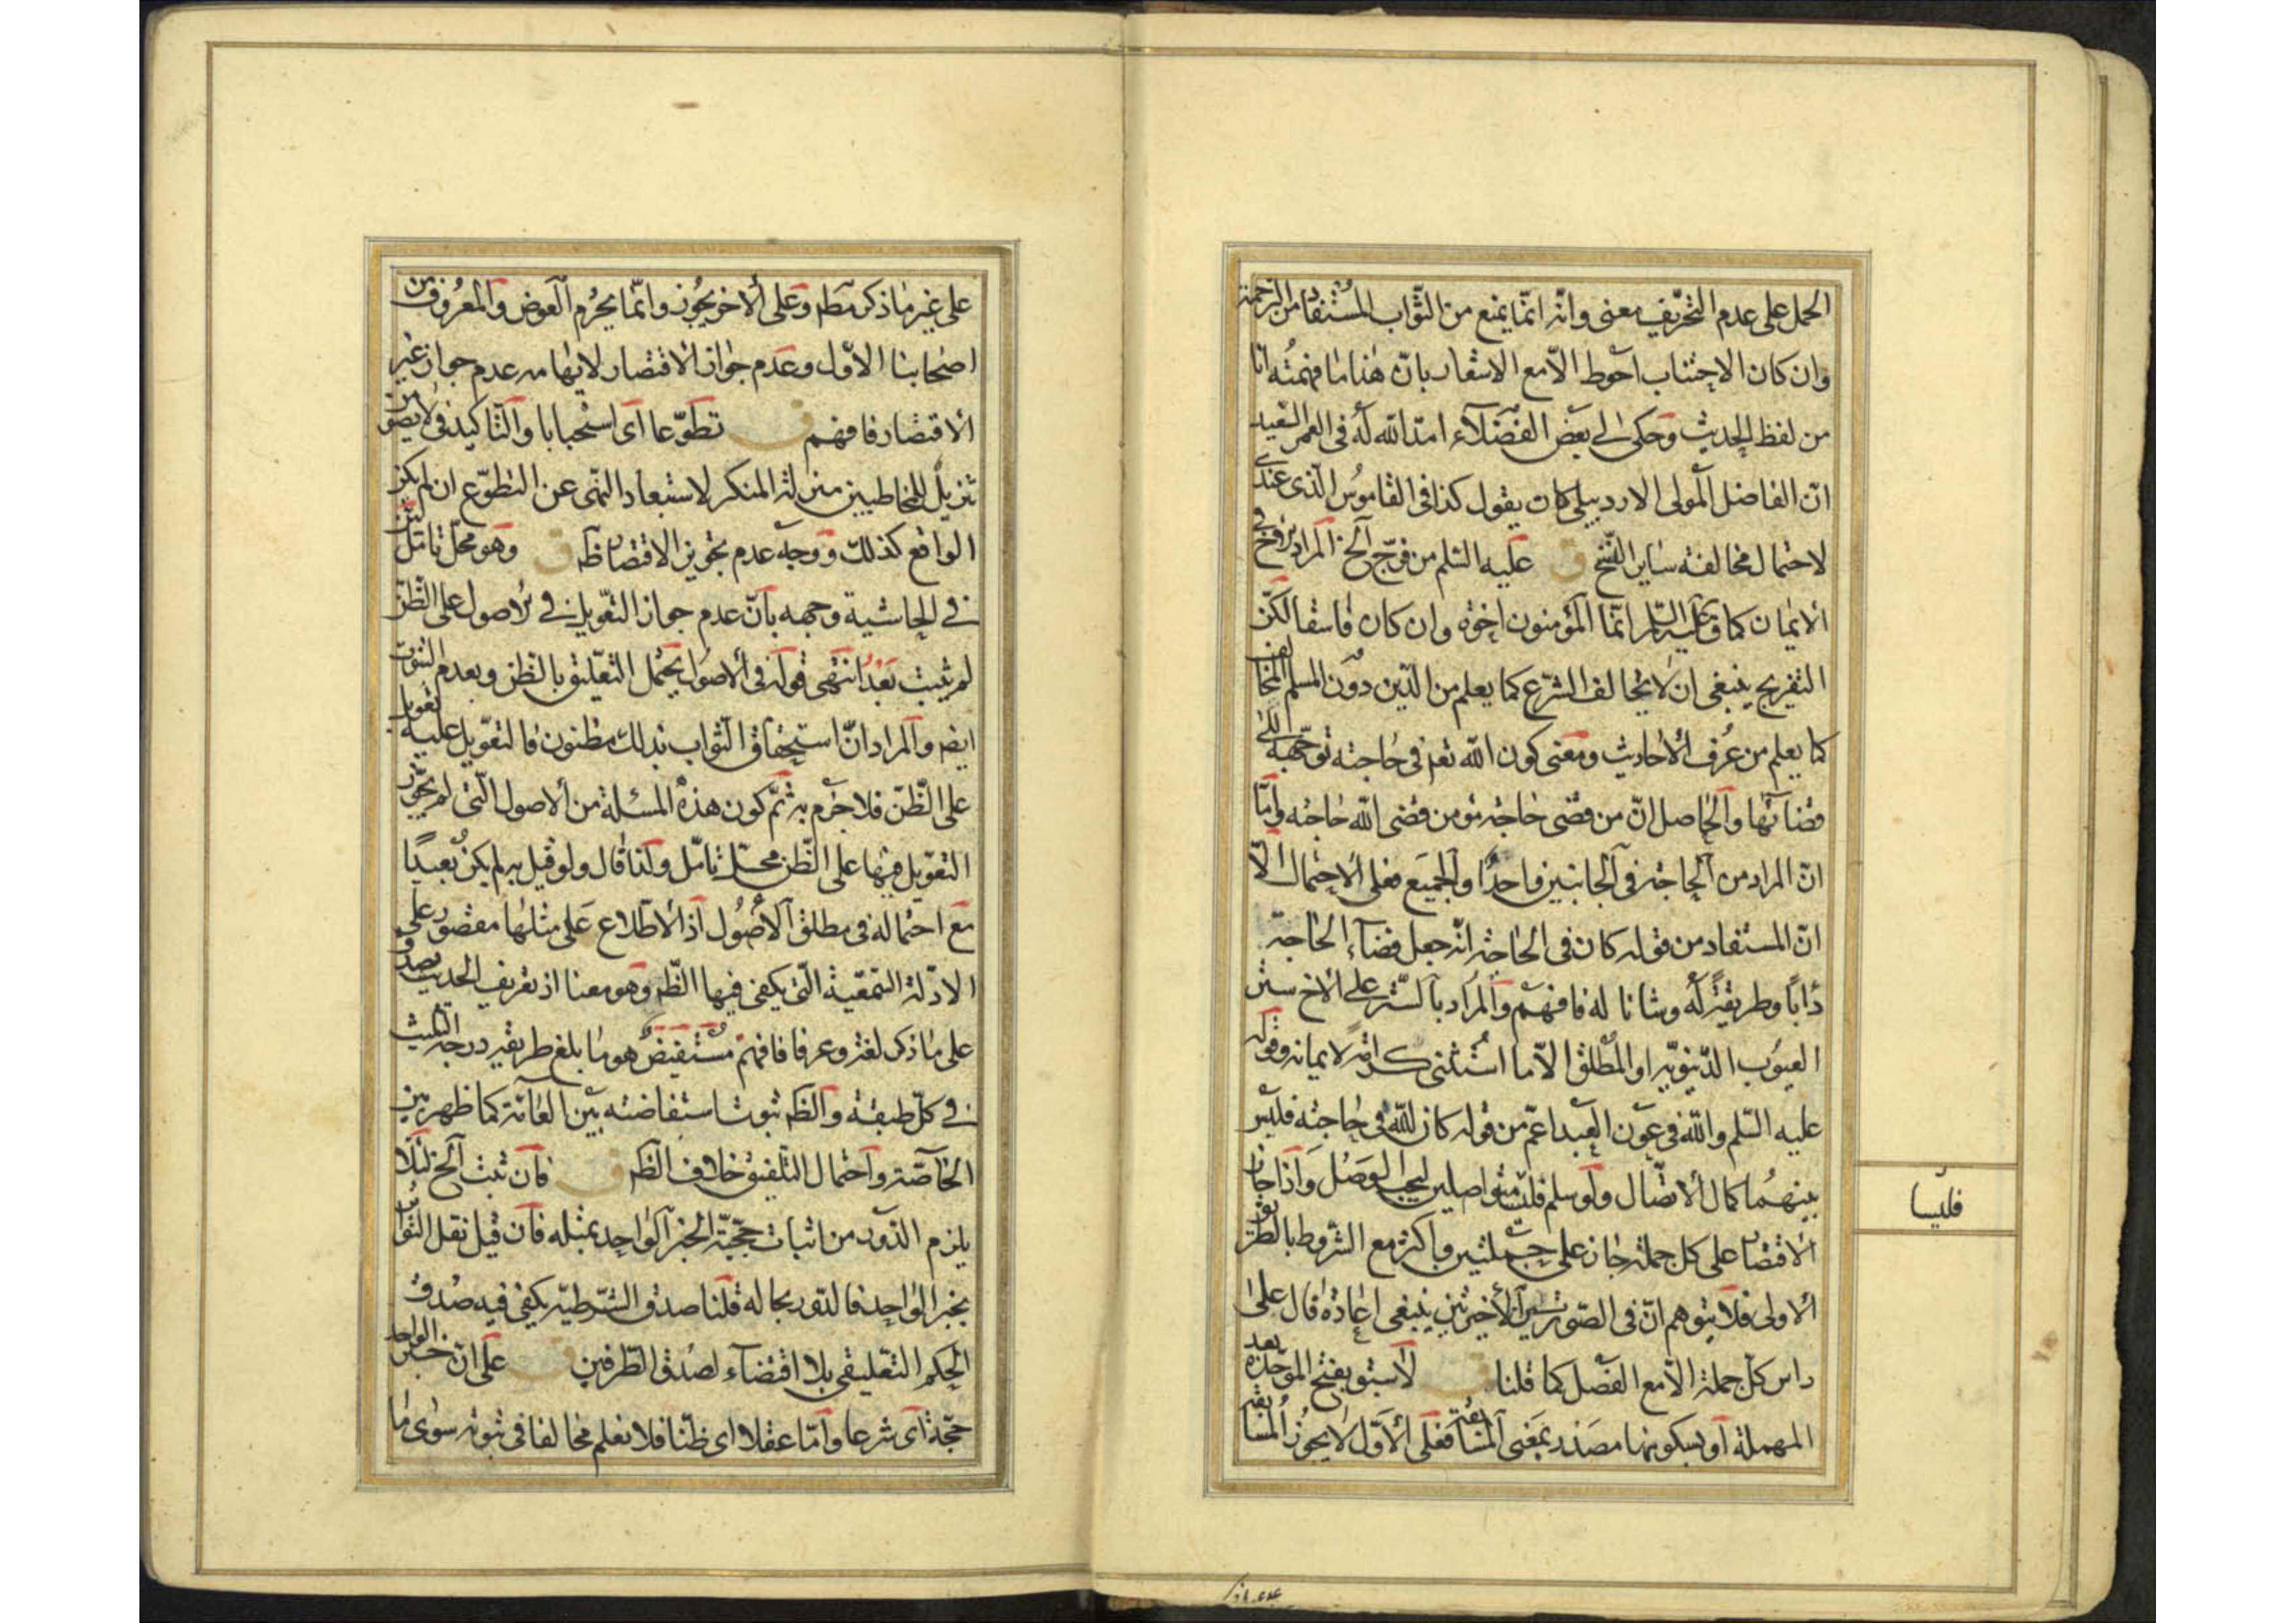 الحمل على عدم التحريف معنى وانه انما يمنع من الثواب المستفاد من الترجمة
وان كان الاجتناب احوط الا مع الاشعار بان هذا ما فهمته انا
من لفظ الحديث وحكى لي بعض الفضلاء امد الله له فى العمر السعيد
ان الفاضل المولى الاردبيلى كان يقول كذا فى القاموس الذى عندى
لاحتمال مخالفة ساير النسخ ق عليه السلم من فرج الخ المراد بالاخ فى
الايمان كما ق انما المؤمنون اخوة وان كان فاسقا لكن
التفريج ينبغى ان لا يخالف الشرع كما يعلم من الدين دون المسلم المخالف
كما يعلم من عرف الاحاديث ومعنى كون الله تعم فى حاجته توجهه الى
قضائها والحاصل ان من قضى حاجة مؤمن قضى الله حاجته واما
ان المراد من الحاجة فى الجانبين واحدا والجميع فعلى الاحتمال الا
ان المستفاد من قوله كان فى الحاجة انه جعل قضاء الحاجة
دابا وطريقة له وشانا له فافهم والمراد بالستر على الاخ ستر
العيوب الدنيوية او المطلق الا ما استثنى كرامة لايمانه وقوله
عليه السلم والله فى عون العبد اعم من قوله كان الله فى حاجته فليس
بينهما كمال الاتصال ولو سلم فليسا متواصلين ليجب الوصل واذا جاز
الاقتصار على كل جملة جاز على جملتين واكثر مع الشروط بالطريق
الاولى فلا يتوهم ان فى الصورتين الاخيرتين ينبغى اعادة قال على
راس كل جملة الا مع الفصل كما قلنا ق لا سبق بفتح الموحدة بعد
المهملة او بسكونها مصدر بمعنى المسابقة فعلى الاول لا يجوز المسابقة
فليسا
على غير ما ذكر مطم وعلى الاخر يجوز وانما يحرم العوض والمعروف من
اصحابنا الاول وعدم جواز الاقتصار لايهامه عدم جواز غير
الاقتصار فافهم ق تطوعا اى استحبابا والتاكيد فى لا يصومن
تنزيل للمخاطبين منزلة المنكر لاستبعاد النهى عن التطوع ان لم يكن
الواقع كذلك ووجه عدم تجويز الاقتصار ظم ق وهو محل تامل بين
فى الحاشية وجهه بان عدم جواز التعويل فى الاصول على الظن
لم يثبت بعد انتهى قوله فى الاصول يحتمل التعليق بالظن وبعدم الثبوت
ايضم والمراد ان استحقاق الثواب بذلك مظنون فالتعويل عليه تعويل
على الظن فلا جزم به ثم كون هذه المسئلة من الاصول التى لم يجوز
التعويل فيها على الظن محل تامل ولذا قال ولو قيل به لم يكن بعيدا
مع احتماله فى مطلق الاصول اذ الاطلاع على مثلها مقصور على
الادلة السمعية التى يكفى فيها الظم وهو معنا اذ تعريف الحديث يصدق
على ما ذكر لغة وعرفا فافهم مستفيض هو ما بلغ طريقه درجة التثليث
فى كل طبقة والظم ثبوت استفاضته بين العامة كما ظهر بين
الخاصة واحتمال التلفيق خلاف الظم ق فان ثبت الخ لئلا
يلزم الدور من اثبات حجية الخبر الواحد بمثله فان قيل نقل الثواب
بخبر الواحد فالدور بحاله قلنا صدق الشرطية يكفى فيه صدق
الحكم التعليقى بلا اقتضاء لصدق الطرفين ق على ان خبر الواحد
حجة اى شرعا واما عقلا اى ظنا فلا نعلم مخالفا فى ثبوته سوى ما